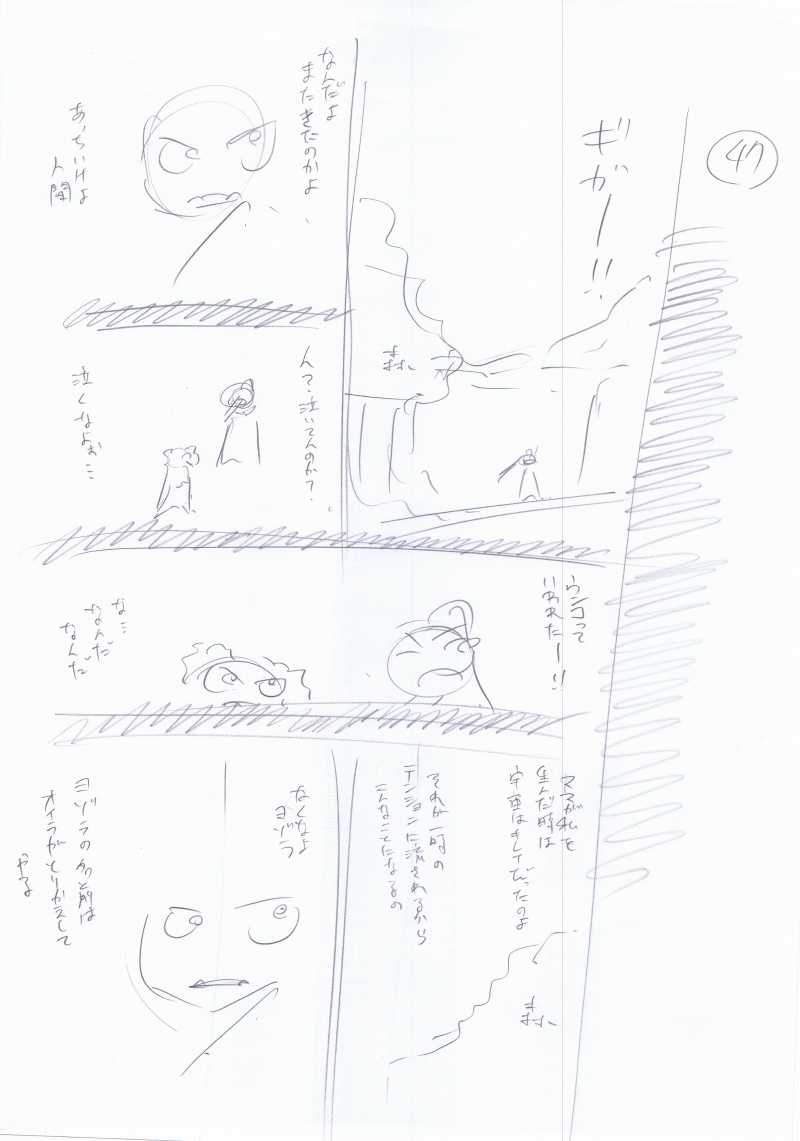 47
ギガー!!
森
なんだよ
またきたのかよ
あっちいけよ
人間
ん?泣いてんのか?
泣くなよぉ…
ウンコって
いわれたー!!
な…
なんだ
なんだ
ママが私を
生んだ時は
それが一時の
テンションに流されるから
こんなことになるの
森
なくなよ
ヨゾラ
オイラがとりかえして
やるよ